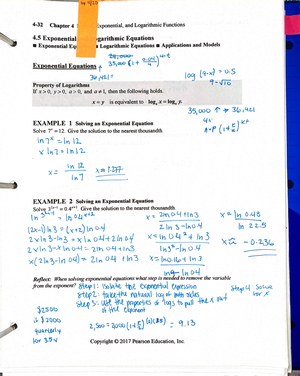 4-32 Chapter 4 Exponential, and Logarithmic Functions
4.5 Exponential Logarithmic Equations
■ Exponential Equations ■ Logarithmic Equations ■ Applications and Models
Exponential Equations
36,421 =
log (9-x) = 0.5
9-√10
Property of Logarithms
If x > 0, y > 0, a > 0, and a ≠ 1, then the following holds.
x = y is equivalent to logₐ x = logₐ y.
35,000 → 36,421
EXAMPLE 1 Solving an Exponential Equation
Solve 7ˣ = 12. Give the solution to the nearest thousandth.
ln 7ˣ = ln 12
x ln 7 = ln 12
x = ln 12 / ln 7
x = 1.277
EXAMPLE 2 Solving an Exponential Equation
Solve 3²ˣ⁻¹ = 0.4ˣ⁺². Give the solution to the nearest thousandth.
ln 3²ˣ⁻¹ = ln 0.4ˣ⁺²
(2x-1) ln 3 = (x+2) ln 0.4
2x ln 3 - ln 3 = x ln 0.4 + 2 ln 0.4
2x ln 3 - x ln 0.4 = 2 ln 0.4 + ln 3
x (2 ln 3 - ln 0.4) = 2 ln 0.4 + ln 3
x = 2 ln 0.4 + ln 3 / 2 ln 3 - ln 0.4
x = ln 0.4² + ln 3 / ln 3² - ln 0.4
x = ln 0.16 + ln 3 / ln 9 - ln 0.4
x = ln 0.48 / ln 22.5
x ≈ -0.236
Reflect: When solving exponential equations what step is needed to remove the variable
from the exponent?
Step 1: Isolate the exponential expression
Step 2: take the natural log of both sides
Step 3: use the properties of logs to pull the x out
of the exponent
Step 4 Solve
for x
$2500
$2000
quarterly
for 3.5%
= 9.13
Copyright © 2017 Pearson Education, Inc.